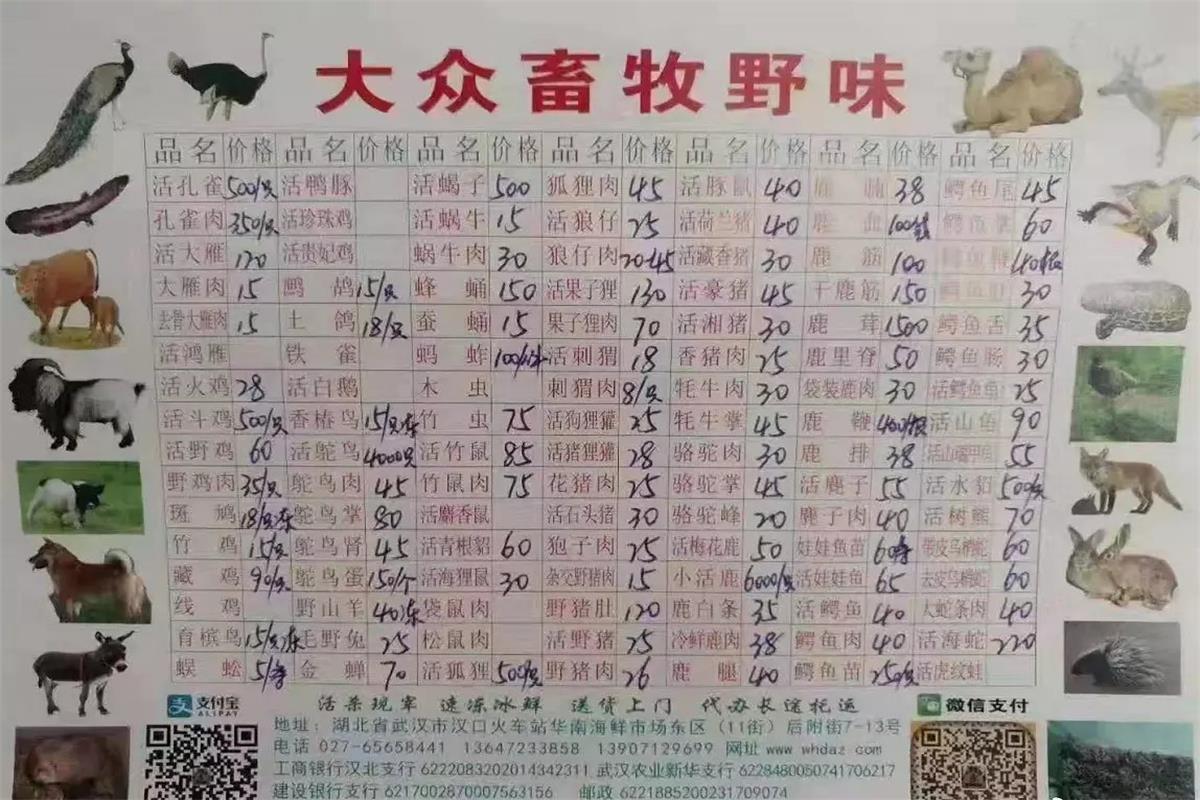 大众畜牧野味
品名 价格 品名 价格 品名 价格 品名 价格 品名 价格 品名 价格 品名 价格
活孔雀 500/只 活鸭豚 活蝎子 500 狐狸肉 45 活豚鼠 40 鹿 38 鳄鱼尾 45
孔雀肉 350/只 活珍珠鸡 活蜗牛 15 活狼仔 25 活荷兰猪 40 鹿血 鳄鱼掌 60
活大雁 120 活贵妃鸡 蜗牛肉 30 狼仔肉 20-45 活藏香猪 30 鹿筋 100 鳄鱼鞭
大雁肉 15 鹧鸪 15/只 蜂蛹 150 活果子狸 130 活豪猪 45 干鹿筋 150 30
去骨大雁肉 15 土鸽 18/只 蚕蛹 15 果子狸肉 70 活湘猪 30 鹿茸 1500 鳄鱼舌 35
活鸿雁 铁雀 蚂蚱 活刺猬 18 香猪肉 25 鹿里脊 50 鳄鱼肠 30
活火鸡 28 活白鹅 木虫 刺猬肉 8/只 牦牛肉 30 袋装鹿肉 30 活鳄鱼龟 25
活斗鸡 500/只 香椿鸟 15/只冻 竹虫 75 活狗狸獾 25 牦牛掌 45 鹿鞭 活山龟 90
活野鸡 60 活鸵鸟 4000只 活竹鼠 85 活猪狸獾 28 骆驼肉 30 鹿排 38 55
野鸡肉 35/只 鸵鸟肉 45 竹鼠肉 75 花猪肉 25 骆驼掌 45 活麂子 55 活水貂 500/只
斑鸠 18/只冻 鸵鸟掌 80 活麝香鼠 活石头猪 30 骆驼峰 20 麂子肉 40 活树熊 70
竹鸡 15/只 鸵鸟肾 45 活青根貂 60 狍子肉 25 活梅花鹿 50 娃娃鱼苗 带皮乌梢蛇 60
藏鸡 90/只 鸵鸟蛋 150/个 活海狸鼠 30 杂交野猪肉 15 小活鹿 6000/只 活娃娃鱼 65 去皮乌梢蛇 60
线鸡 野山羊 40冻 袋鼠肉 野猪肚 120 鹿白条 35 活鳄鱼 40 大蛇条肉 40
育槟鸟 15/只冻 毛野兔 25 松鼠肉 活野猪 25 冷鲜鹿肉 38 鳄鱼肉 40 活海蛇 220
蜈蚣 金蝉 70 活狐狸 500/只 野猪肉 26 鹿腿 40 鳄鱼苗 250/只 活虎纹蛙
支付宝
ALIPAY
活杀现宰 速冻冰鲜 送货上门 代办长途托运
微信支付
地址：湖北省武汉市汉口火车站华南海鲜市场东区（11街）后附街7-13号
电话 027-65658441 13647233858 13907129699 网址 www whdaz com
工商银行汉北支行 6222083202014342311 武汉农业新华支行 6228480050741706217
建设银行支行 6217002870007563156 邮政 6221885200231709074